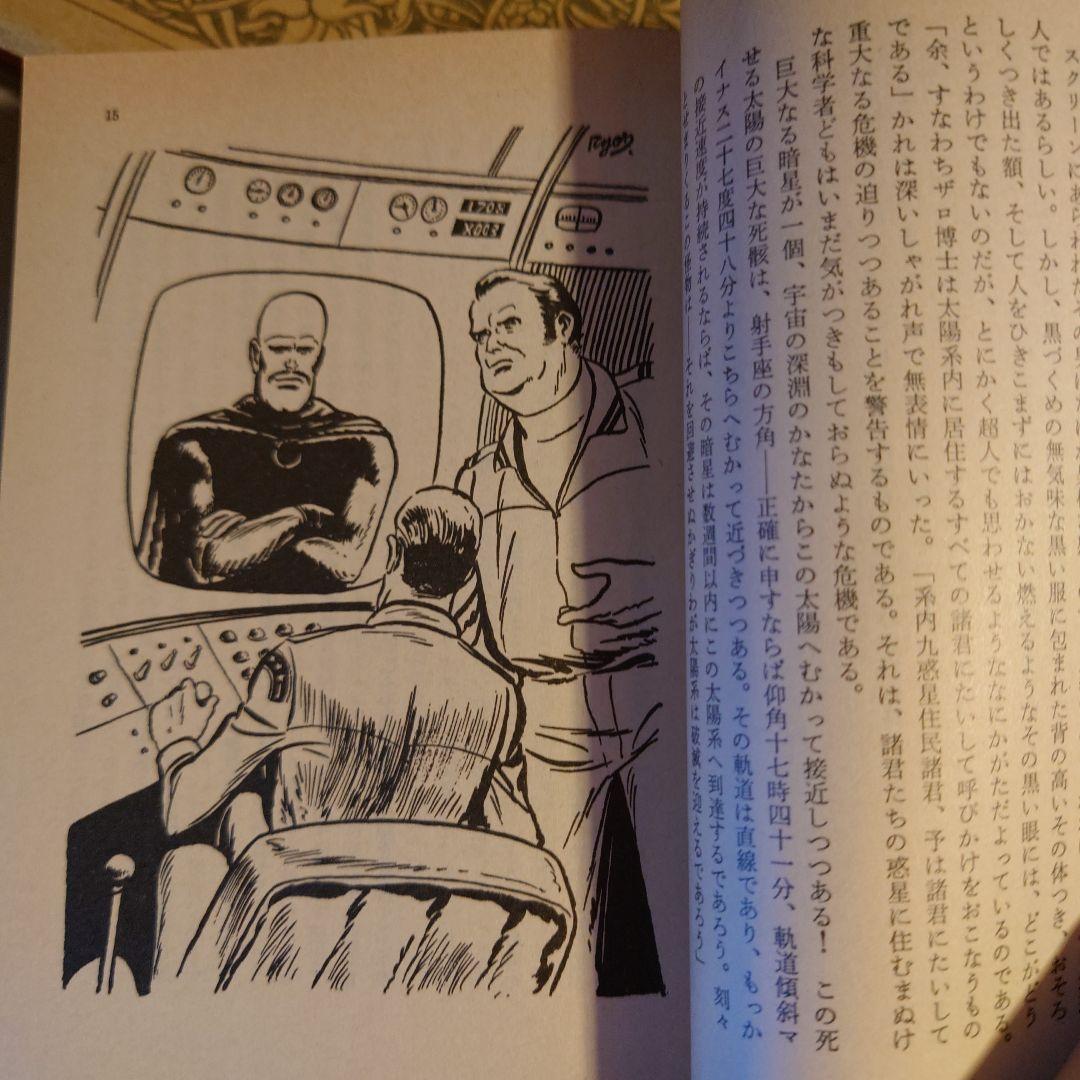 スクリーンにあらわれたその男は
人ではあるらしい。しかし、黒づくめの無気味な黒い服に包まれた背の高いその体つき、おそろ
しくつき出た額、そして人をひきこまずにはおかない燃えるようなその黒い眼には、どこがどう
というわけでもないのだが、とにかく超人でも思わせるようななにかがただよっているのである。
「余、すなわちザロ博士は太陽系内に居住するすべての諸君にたいして呼びかけをおこなうもの
である」かれは深いしゃがれ声で無表情にいった。「系内九惑星住民諸君、予は諸君にたいして
重大なる危機の迫りつつあることを警告するものである。それは、諸君たちの惑星に住むまぬけ
な科学者どもはいまだ気がつきもしておらぬような危機である。
巨大なる暗星が一個、宇宙の深淵のかなたからこの太陽へむかって接近しつつある！　この死
せる太陽の巨大な死骸は、射手座の方角――正確に申すならば仰角十七時四十一分、軌道傾斜マ
イナス二十七度四十八分よりこちらへむかって近づきつつある。その軌道は直線であり、もっか
の接近速度が持続されるならば、その暗星は数週間以内にこの太陽系へ到達するであろう。刻々
この怪物は――それを回避させぬかぎりわが太陽系は破滅を迎えるであろう」
15
1708
X00S